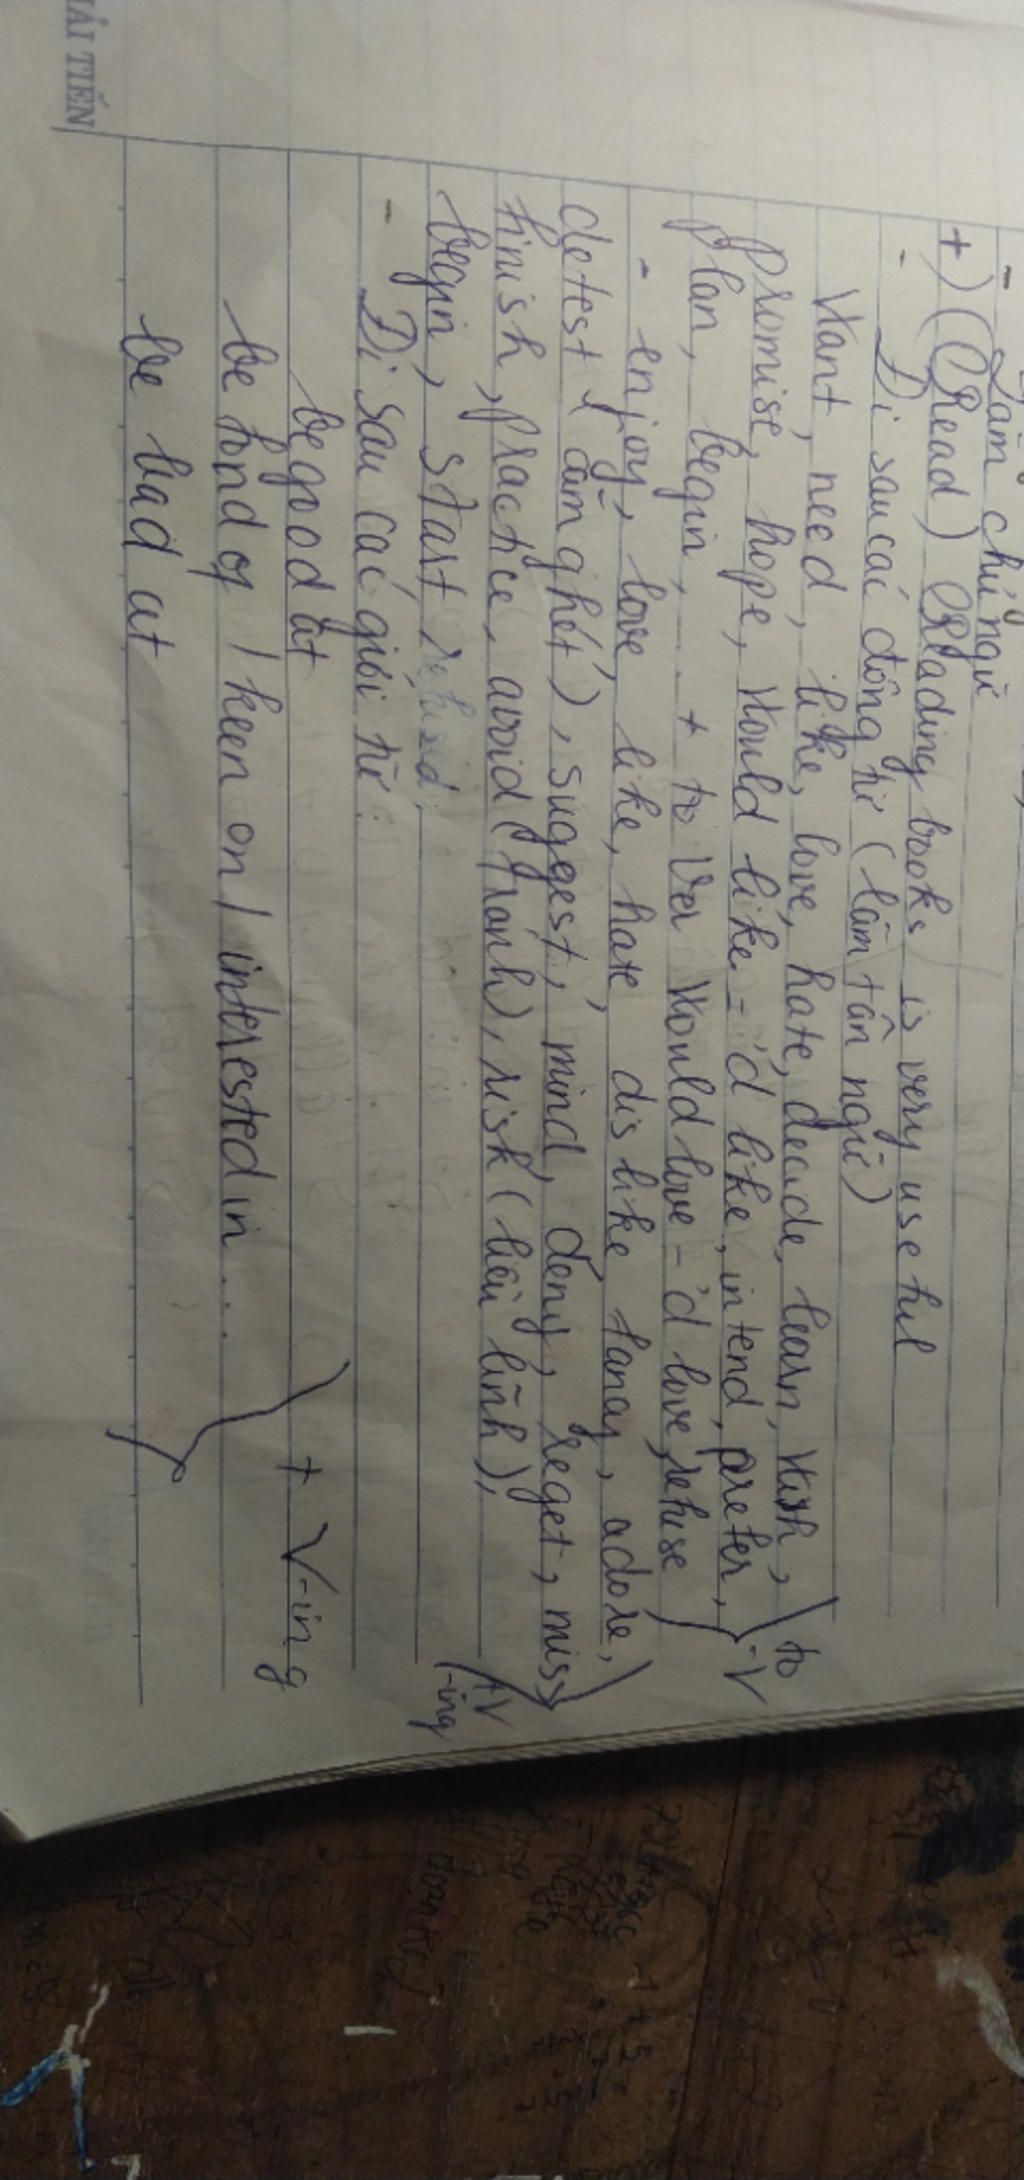 - Làm chủ ngữ
+) (Read) Reading books is very useful
- Đi sau các động từ (làm tân ngữ)
Want, need, like, love, hate, decide, learn, wish,
promise, hope, would like = 'd like, intend, prefer,
plan, begin, ... + to Ver would love = 'd love, refuse
to
-V
- enjoy, love, like, hate, dislike, fancy, adore,
detest (căm ghét), suggest, mind, deny, reget, miss
finish, practice, avoid (tránh), risk (liều lĩnh),
begin, start
+V
-ing
- Đi sau các giới từ:
be good at
be fond of / keen on / interested in ...
+ V-ing
be bad at
HẢI TIẾN